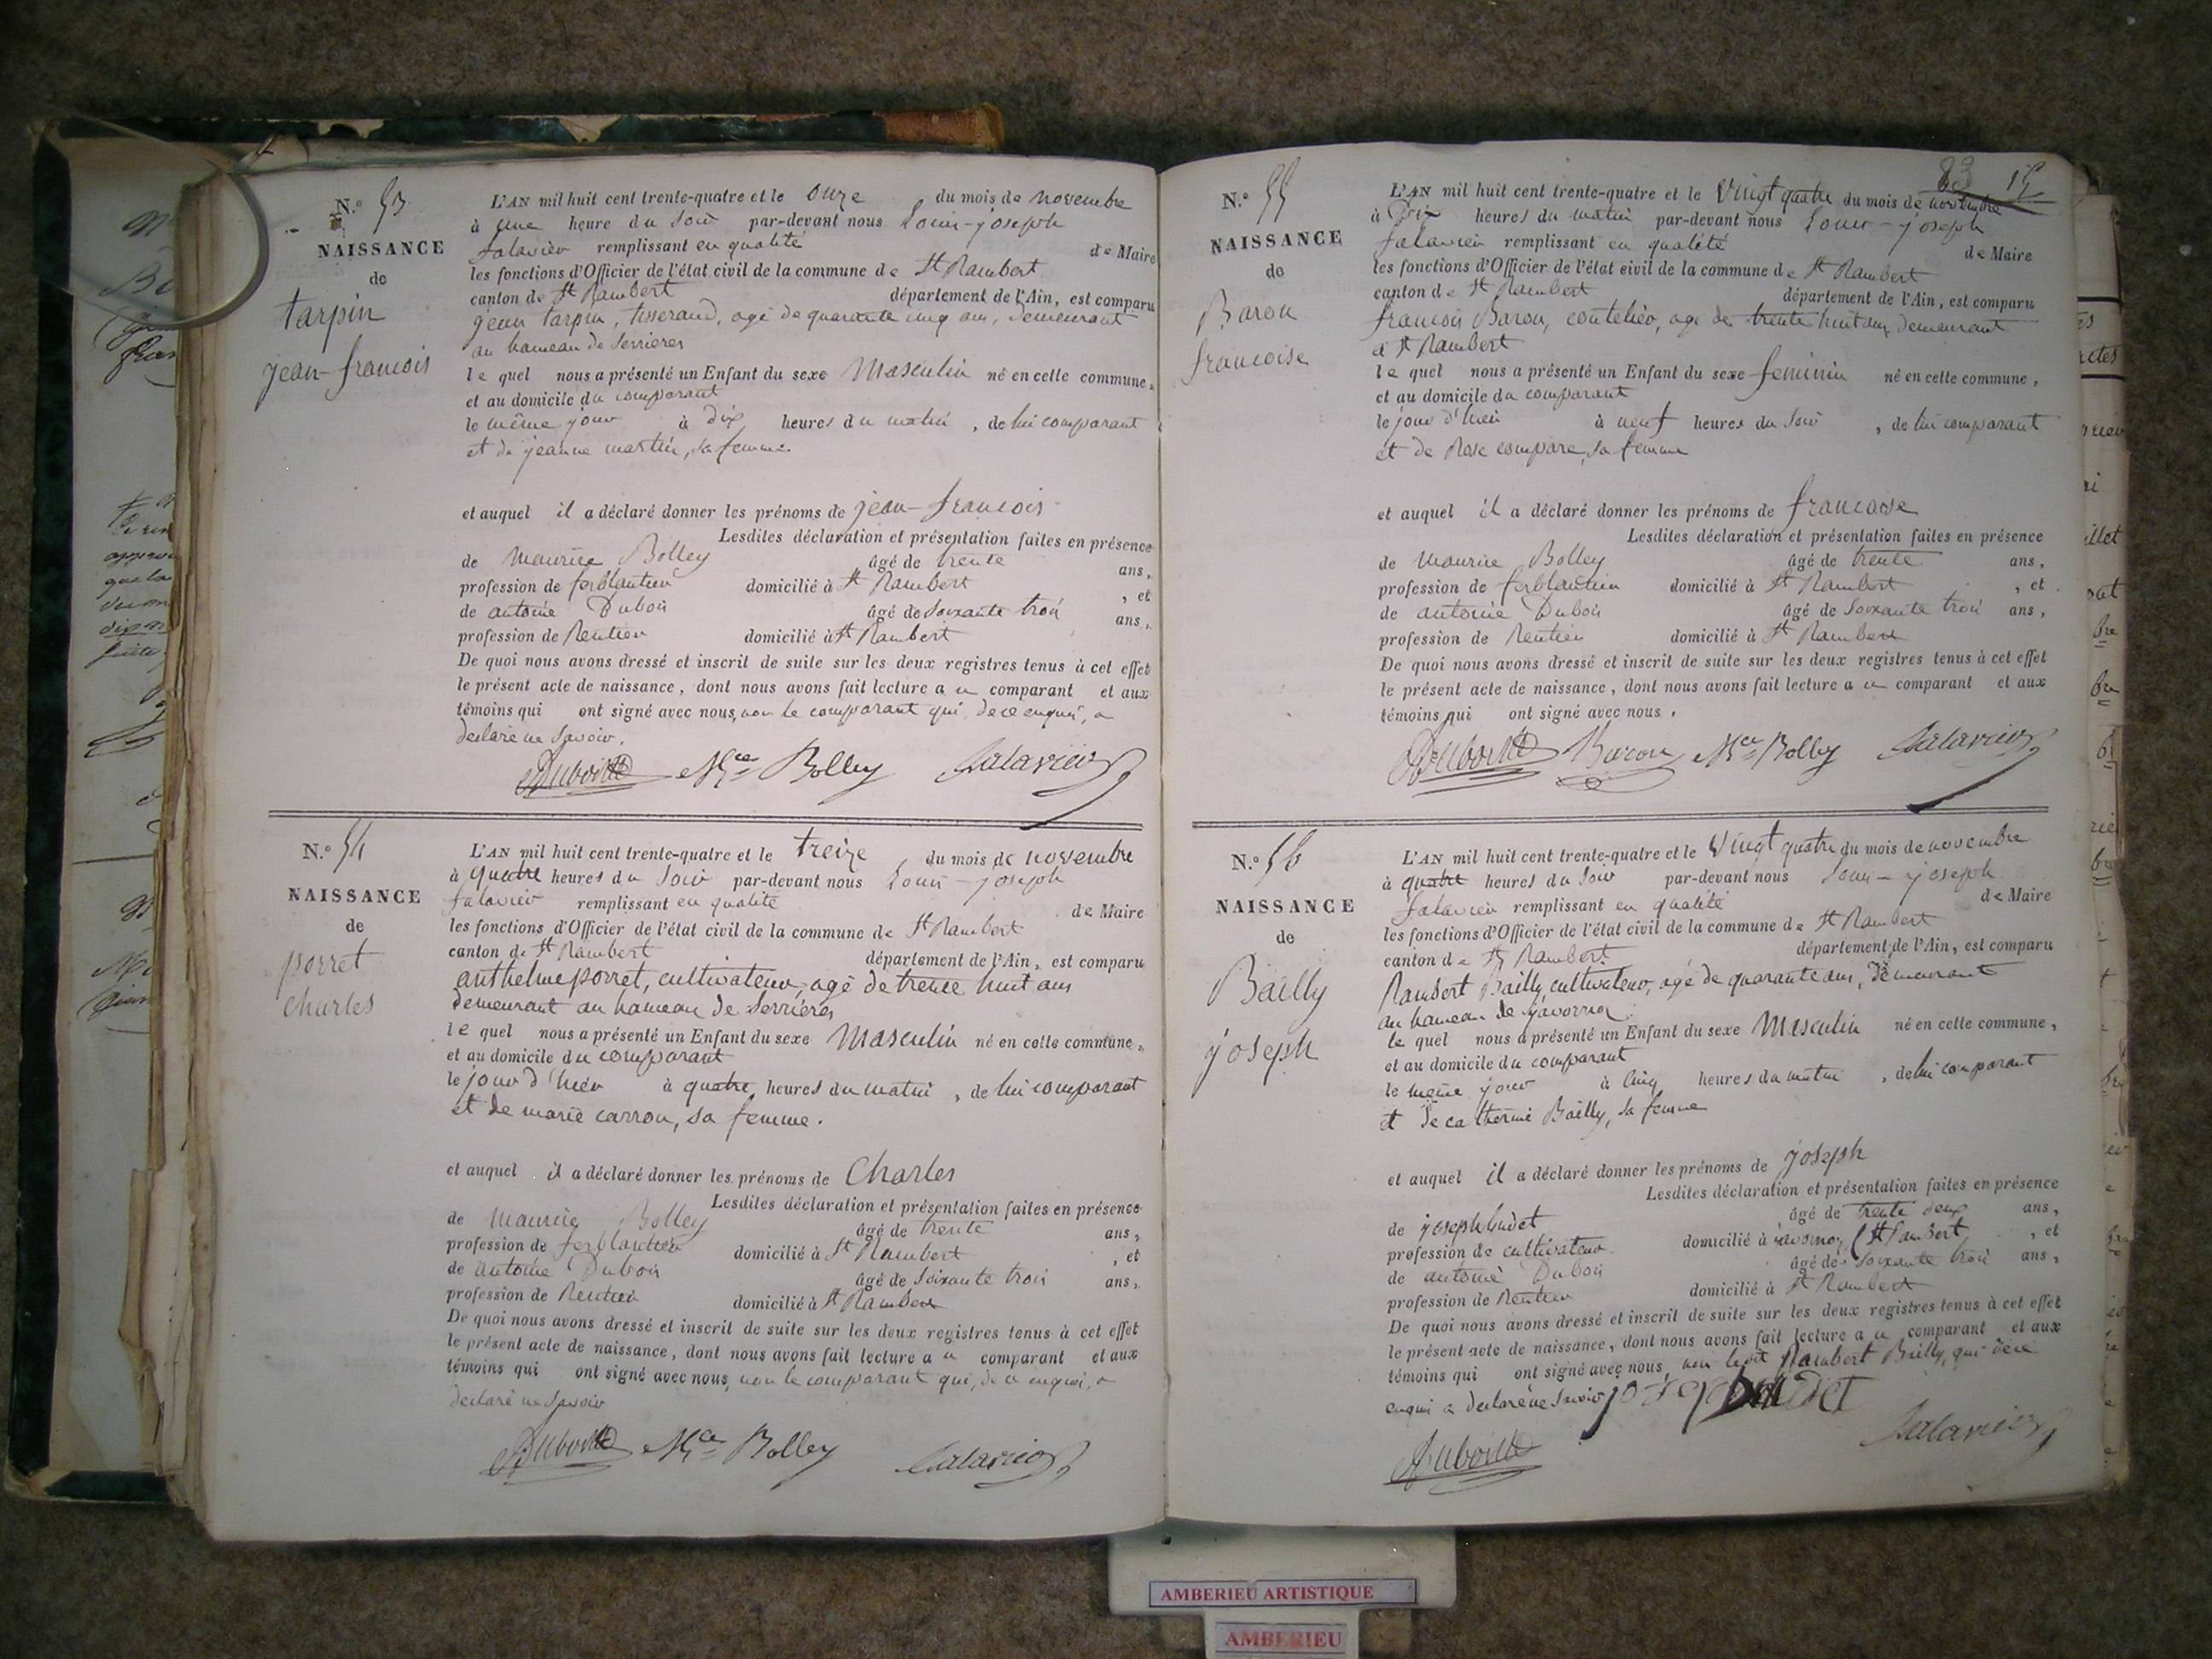 N.º 53
NAISSANCE
de
tarpin
jean-francois
L'AN mil huit cent trente-quatre et le onze du mois de novembre
à une heure du soir par-devant nous Louis-joseph
falavier remplissant en qualité de Maire
les fonctions d'Officier de l'état civil de la commune de St Rambert
canton de St Rambert département de l'Ain, est comparu
jean tarpin, tisserand, agé de quarante cinq ans, demeurant
au hameau de Serrieres
le quel nous a présenté un Enfant du sexe Masculin né en cette commune,
et au domicile du comparant
le même jour à dix heures du matin, de lui comparant
et de jeanne martin, sa femme
et auquel il a déclaré donner les prénoms de jean-francois
Lesdites déclaration et présentation faites en présence
de maurice Bolley âgé de trente ans,
profession de ferblantier domicilié à St Rambert, et
de antoine Dubois âgé de soixante trois ans,
profession de Rentier domicilié à St Rambert
De quoi nous avons dressé et inscrit de suite sur les deux registres tenus à cet effet
le présent acte de naissance, dont nous avons fait lecture au comparant et aux
témoins qui ont signé avec nous, non le comparant qui, de ce enquis, a
declaré ne savoir.
Mce Bolley
N.º 54
NAISSANCE
de
porret
charles
L'AN mil huit cent trente-quatre et le treize du mois de novembre
à quatre heures du soir par-devant nous Louis-joseph
falavier remplissant en qualité de Maire
les fonctions d'Officier de l'état civil de la commune de St Rambert
canton de St Rambert département de l'Ain, est comparu
anthelme porret, cultivateur, agé de trente huit ans
demeurant au hameau de Serrieres
le quel nous a présenté un Enfant du sexe Masculin né en cette commune,
et au domicile du comparant
le jour d'hier à quatre heures du matin, de lui comparant
et de marie carron, sa femme.
et auquel il a déclaré donner les prénoms de Charles
Lesdites déclaration et présentation faites en présence
de maurice Bolley âgé de trente ans,
profession de ferblantier domicilié à St Rambert, et
de antoine Dubois âgé de soixante trois ans,
profession de Rentier domicilié à St Rambert
De quoi nous avons dressé et inscrit de suite sur les deux registres tenus à cet effet
le présent acte de naissance, dont nous avons fait lecture au comparant et aux
témoins qui ont signé avec nous, non le comparant qui, de ce enquis, a
declaré ne savoir
Mce Bolley
83 15
N.º 55
NAISSANCE
de
Baron
francoise
L'AN mil huit cent trente-quatre et le Vingt quatre du mois de novembre
à Dix heures du matin par-devant nous Louis-joseph
falavier remplissant en qualité de Maire
les fonctions d'Officier de l'état civil de la commune de St Rambert
canton de St Rambert département de l'Ain, est comparu
francois Baron, coutelier, agé de trente huit ans demeurant
à St Rambert
le quel nous a présenté un Enfant du sexe feminin né en cette commune,
et au domicile du comparant
le jour d'hier à neuf heures du soir, de lui comparant
et de Rose compare, sa femme
et auquel il a déclaré donner les prénoms de francoise
Lesdites déclaration et présentation faites en présence
de maurice Bolley âgé de trente ans,
profession de ferblantier domicilié à St Rambert, et
de antoine Dubois âgé de soixante trois ans,
profession de Rentier domicilié à St Rambert
De quoi nous avons dressé et inscrit de suite sur les deux registres tenus à cet effet
le présent acte de naissance, dont nous avons fait lecture au comparant et aux
témoins qui ont signé avec nous.
Baron Mce Bolley
N.º 56
NAISSANCE
de
Bailly
joseph
L'AN mil huit cent trente-quatre et le Vingt quatre du mois de novembre
à quatre heures du soir par-devant nous Louis-joseph
falavier remplissant en qualité de Maire
les fonctions d'Officier de l'état civil de la commune de St Rambert
canton de St Rambert département de l'Ain, est comparu
Rambert Bailly, cultivateur, agé de quarante ans, demeurant
au hameau de
le quel nous a présenté un Enfant du sexe Masculin né en cette commune,
et au domicile du comparant
le même jour à cinq heures du matin, de lui comparant
et de catherine Bailly, sa femme
et auquel il a déclaré donner les prénoms de joseph
Lesdites déclaration et présentation faites en présence
de joseph budet âgé de trente deux ans,
profession de cultivateur domicilié à St Rambert, et
de antoine Dubois âgé de soixante trois ans,
profession de Rentier domicilié à St Rambert
De quoi nous avons dressé et inscrit de suite sur les deux registres tenus à cet effet
le présent acte de naissance, dont nous avons fait lecture au comparant et aux
témoins qui ont signé avec nous, non ledit Rambert Bailly, qui de ce
enquis a declaré ne savoir
AMBERIEU ARTISTIQUE
AMBERIEU